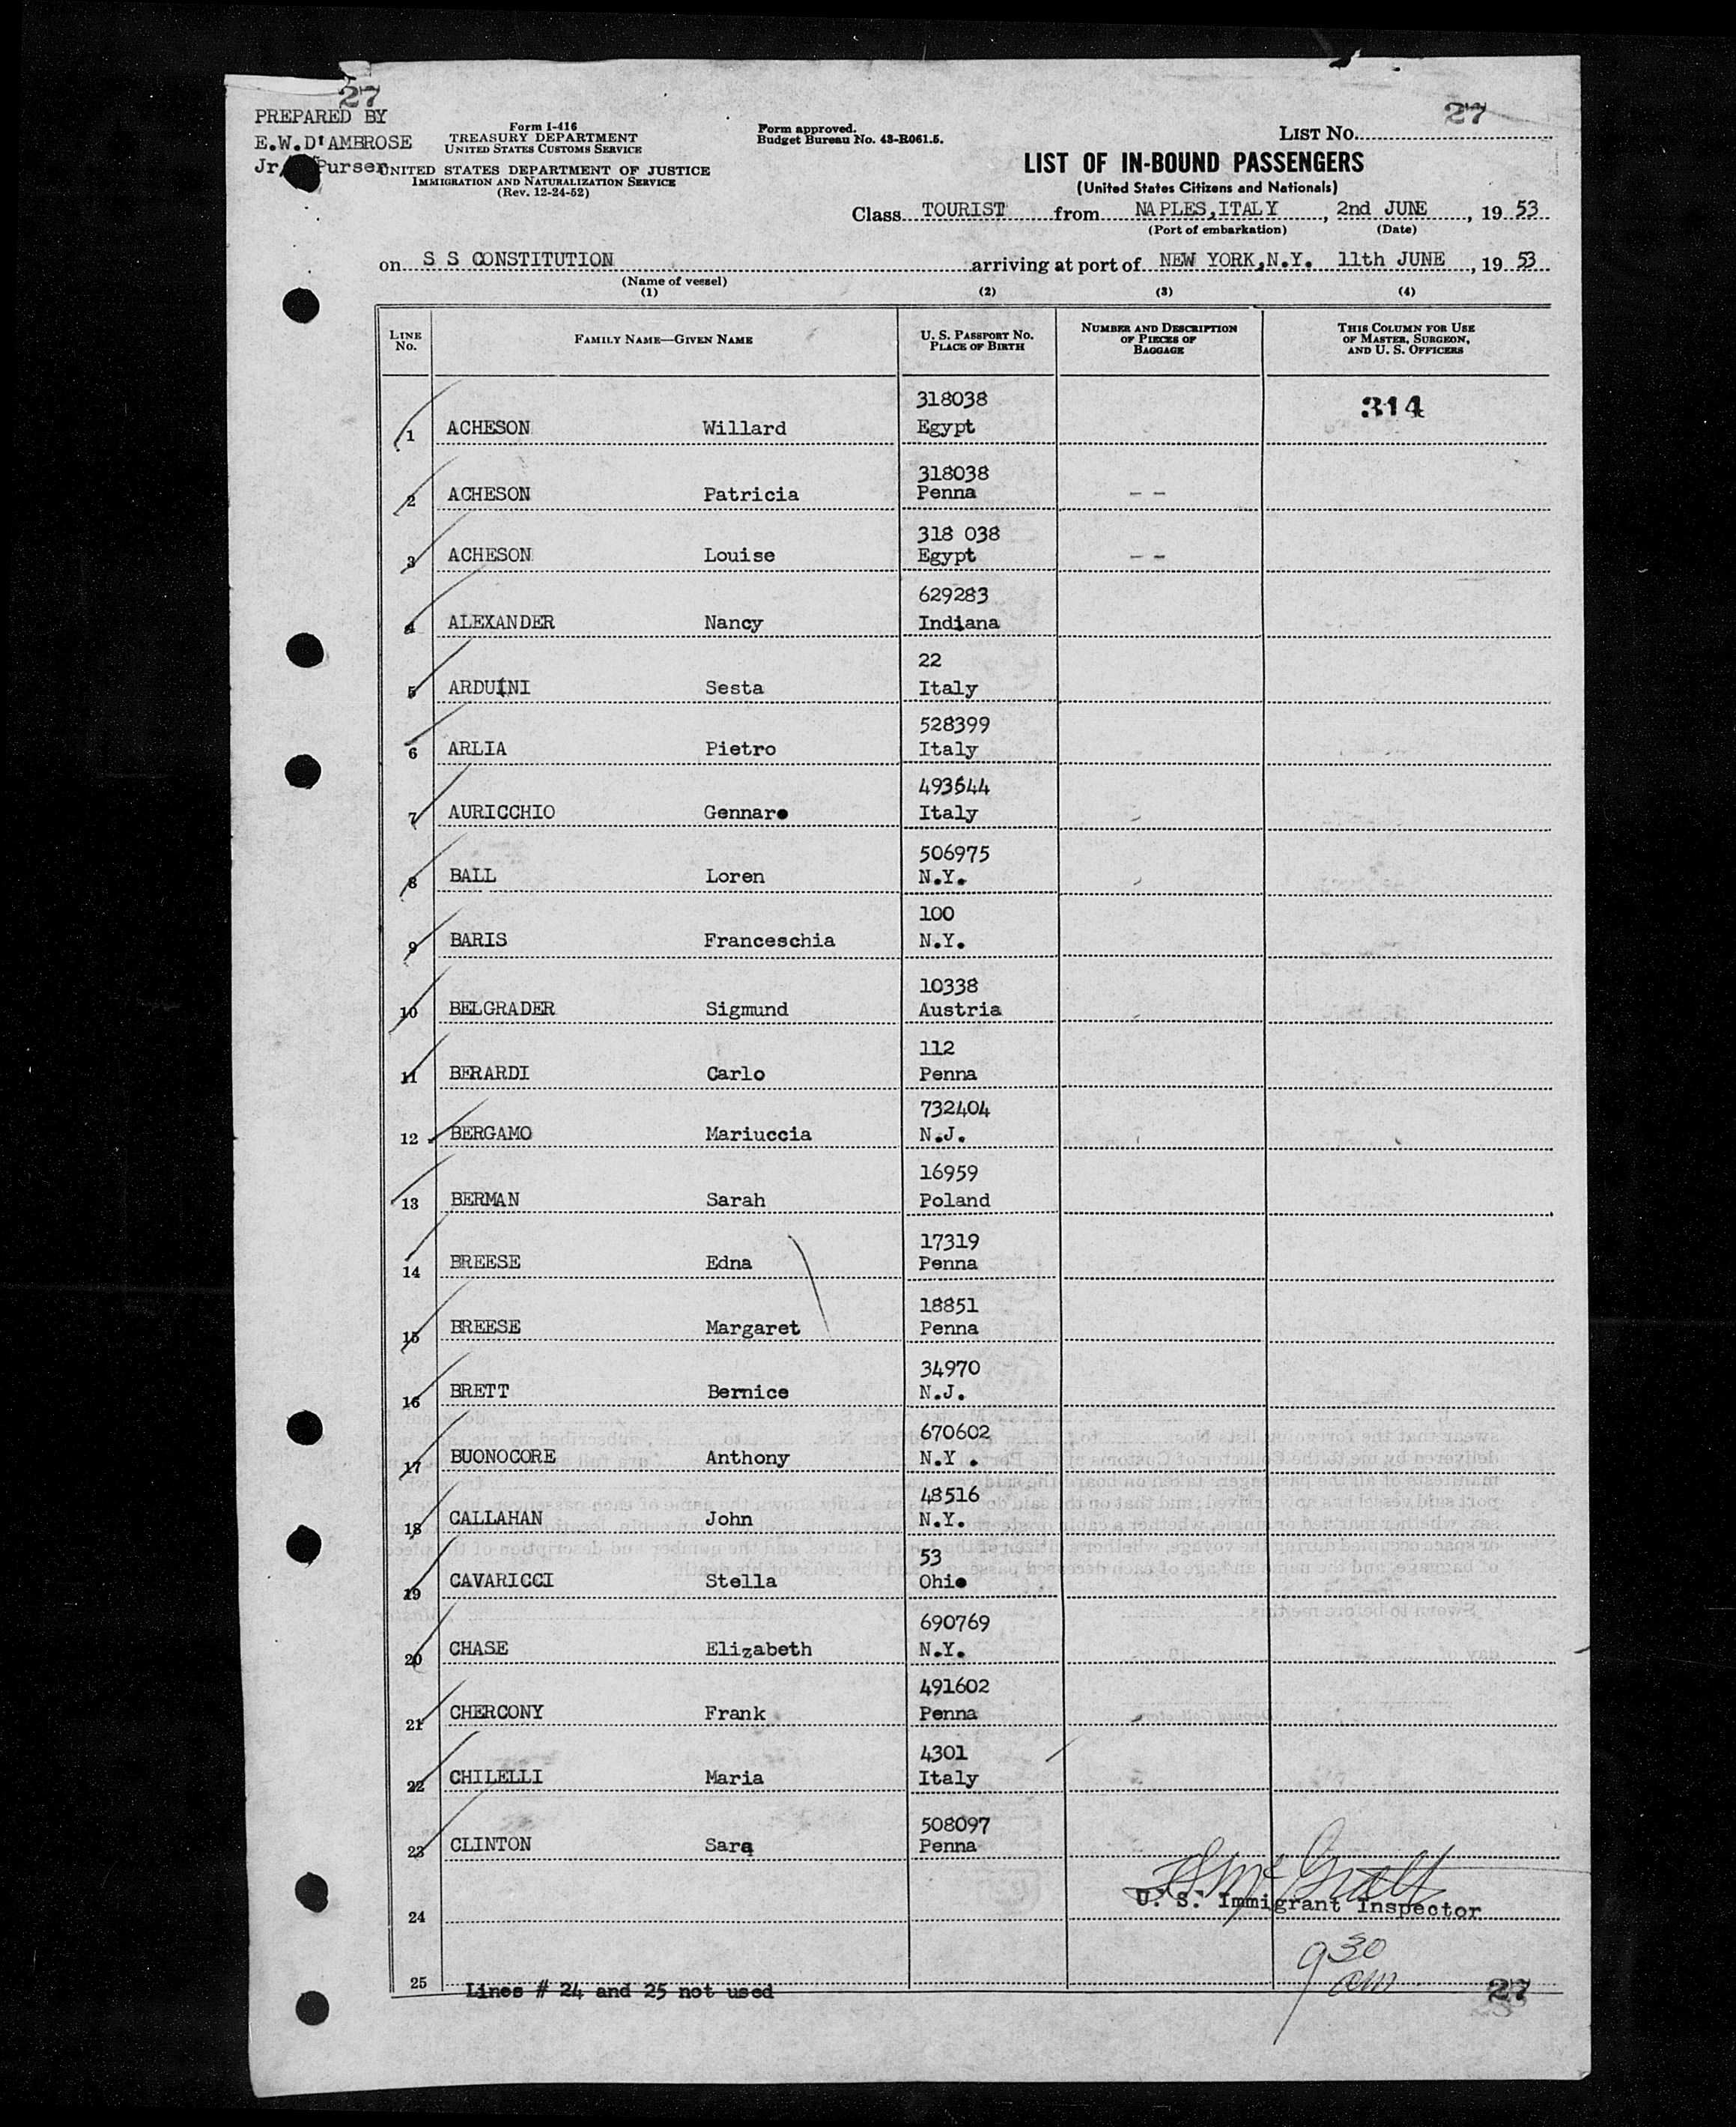 27
PREPARED BY
E.W.D'AMBROSE
Jr. Purser
Form I-416
TREASURY DEPARTMENT
UNITED STATES CUSTOMS SERVICE
UNITED STATES DEPARTMENT OF JUSTICE
IMMIGRATION AND NATURALIZATION SERVICE
(Rev. 12-24-52)
Form approved.
Budget Bureau No. 43-R061.5.
LIST NO. 27
LIST OF IN-BOUND PASSENGERS
(United States Citizens and Nationals)
Class TOURIST from NAPLES,ITALY, 2nd JUNE, 19 53
(Port of embarkation) (Date)
on S S CONSTITUTION arriving at port of NEW YORK,N.Y. 11th JUNE, 19 53
(Name of vessel)
(1) (2) (3) (4)
LINE NO. FAMILY NAME—GIVEN NAME U. S. PASSPORT NO. PLACE OF BIRTH NUMBER AND DESCRIPTION OF PIECES OF BAGGAGE THIS COLUMN FOR USE OF MASTER, SURGEON, AND U. S. OFFICERS
318038 314
1 ACHESON Willard Egypt
318038
2 ACHESON Patricia Penna - -
318 038
3 ACHESON Louise Egypt - -
629283
4 ALEXANDER Nancy Indiana
22
5 ARDUINI Sesta Italy
528399
6 ARLIA Pietro Italy
493644
7 AURICCHIO Gennaro Italy
506975
8 BALL Loren N.Y.
100
9 BARIS Franceschia N.Y.
10338
10 BELGRADER Sigmund Austria
112
11 BERARDI Carlo Penna
732404
12 BERGAMO Mariuccia N.J.
16959
13 BERMAN Sarah Poland
17319
14 BREESE Edna Penna
18851
15 BREESE Margaret Penna
34970
16 BRETT Bernice N.J.
670602
17 BUONOCORE Anthony N.Y .
48516
18 CALLAHAN John N.Y.
53
19 CAVARICCI Stella Ohio
690769
20 CHASE Elizabeth N.Y.
491602
21 CHERCONY Frank Penna
4301
22 CHILELLI Maria Italy
508097
23 CLINTON Sara Penna
U. S. Immigrant Inspector
24
9 30 am
25 Lines # 24 and 25 not used
27